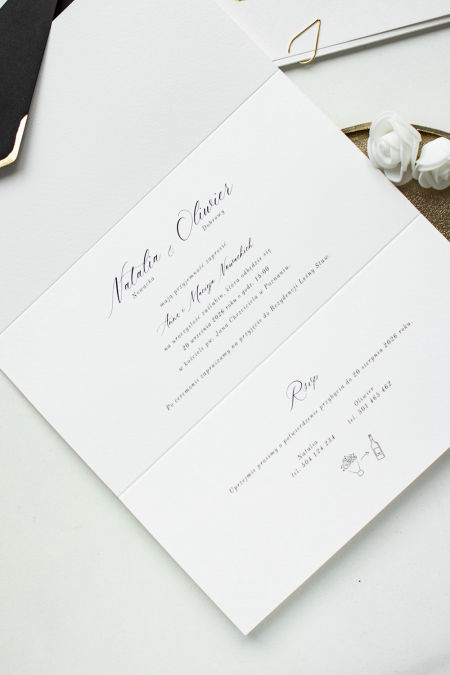 Natalia & Oliwier
Nowacka Dobrowy
mają przyjemność zaprosić
Annę i Macieja Nowackich
na uroczystość zaślubin, która odbędzie się
20 września 2026 roku o godz. 15:00
w kościele pw. Jana Chrzciciela w Poznaniu.
Po ceremonii zapraszamy na przyjęcie do Rezydencji Leśny Staw.
Rsvp
Uprzejmie prosimy o potwierdzenie przybycia do 20 sierpnia 2026 roku.
Natalia Oliwier
tel. 504 124 224 tel. 501 465 462